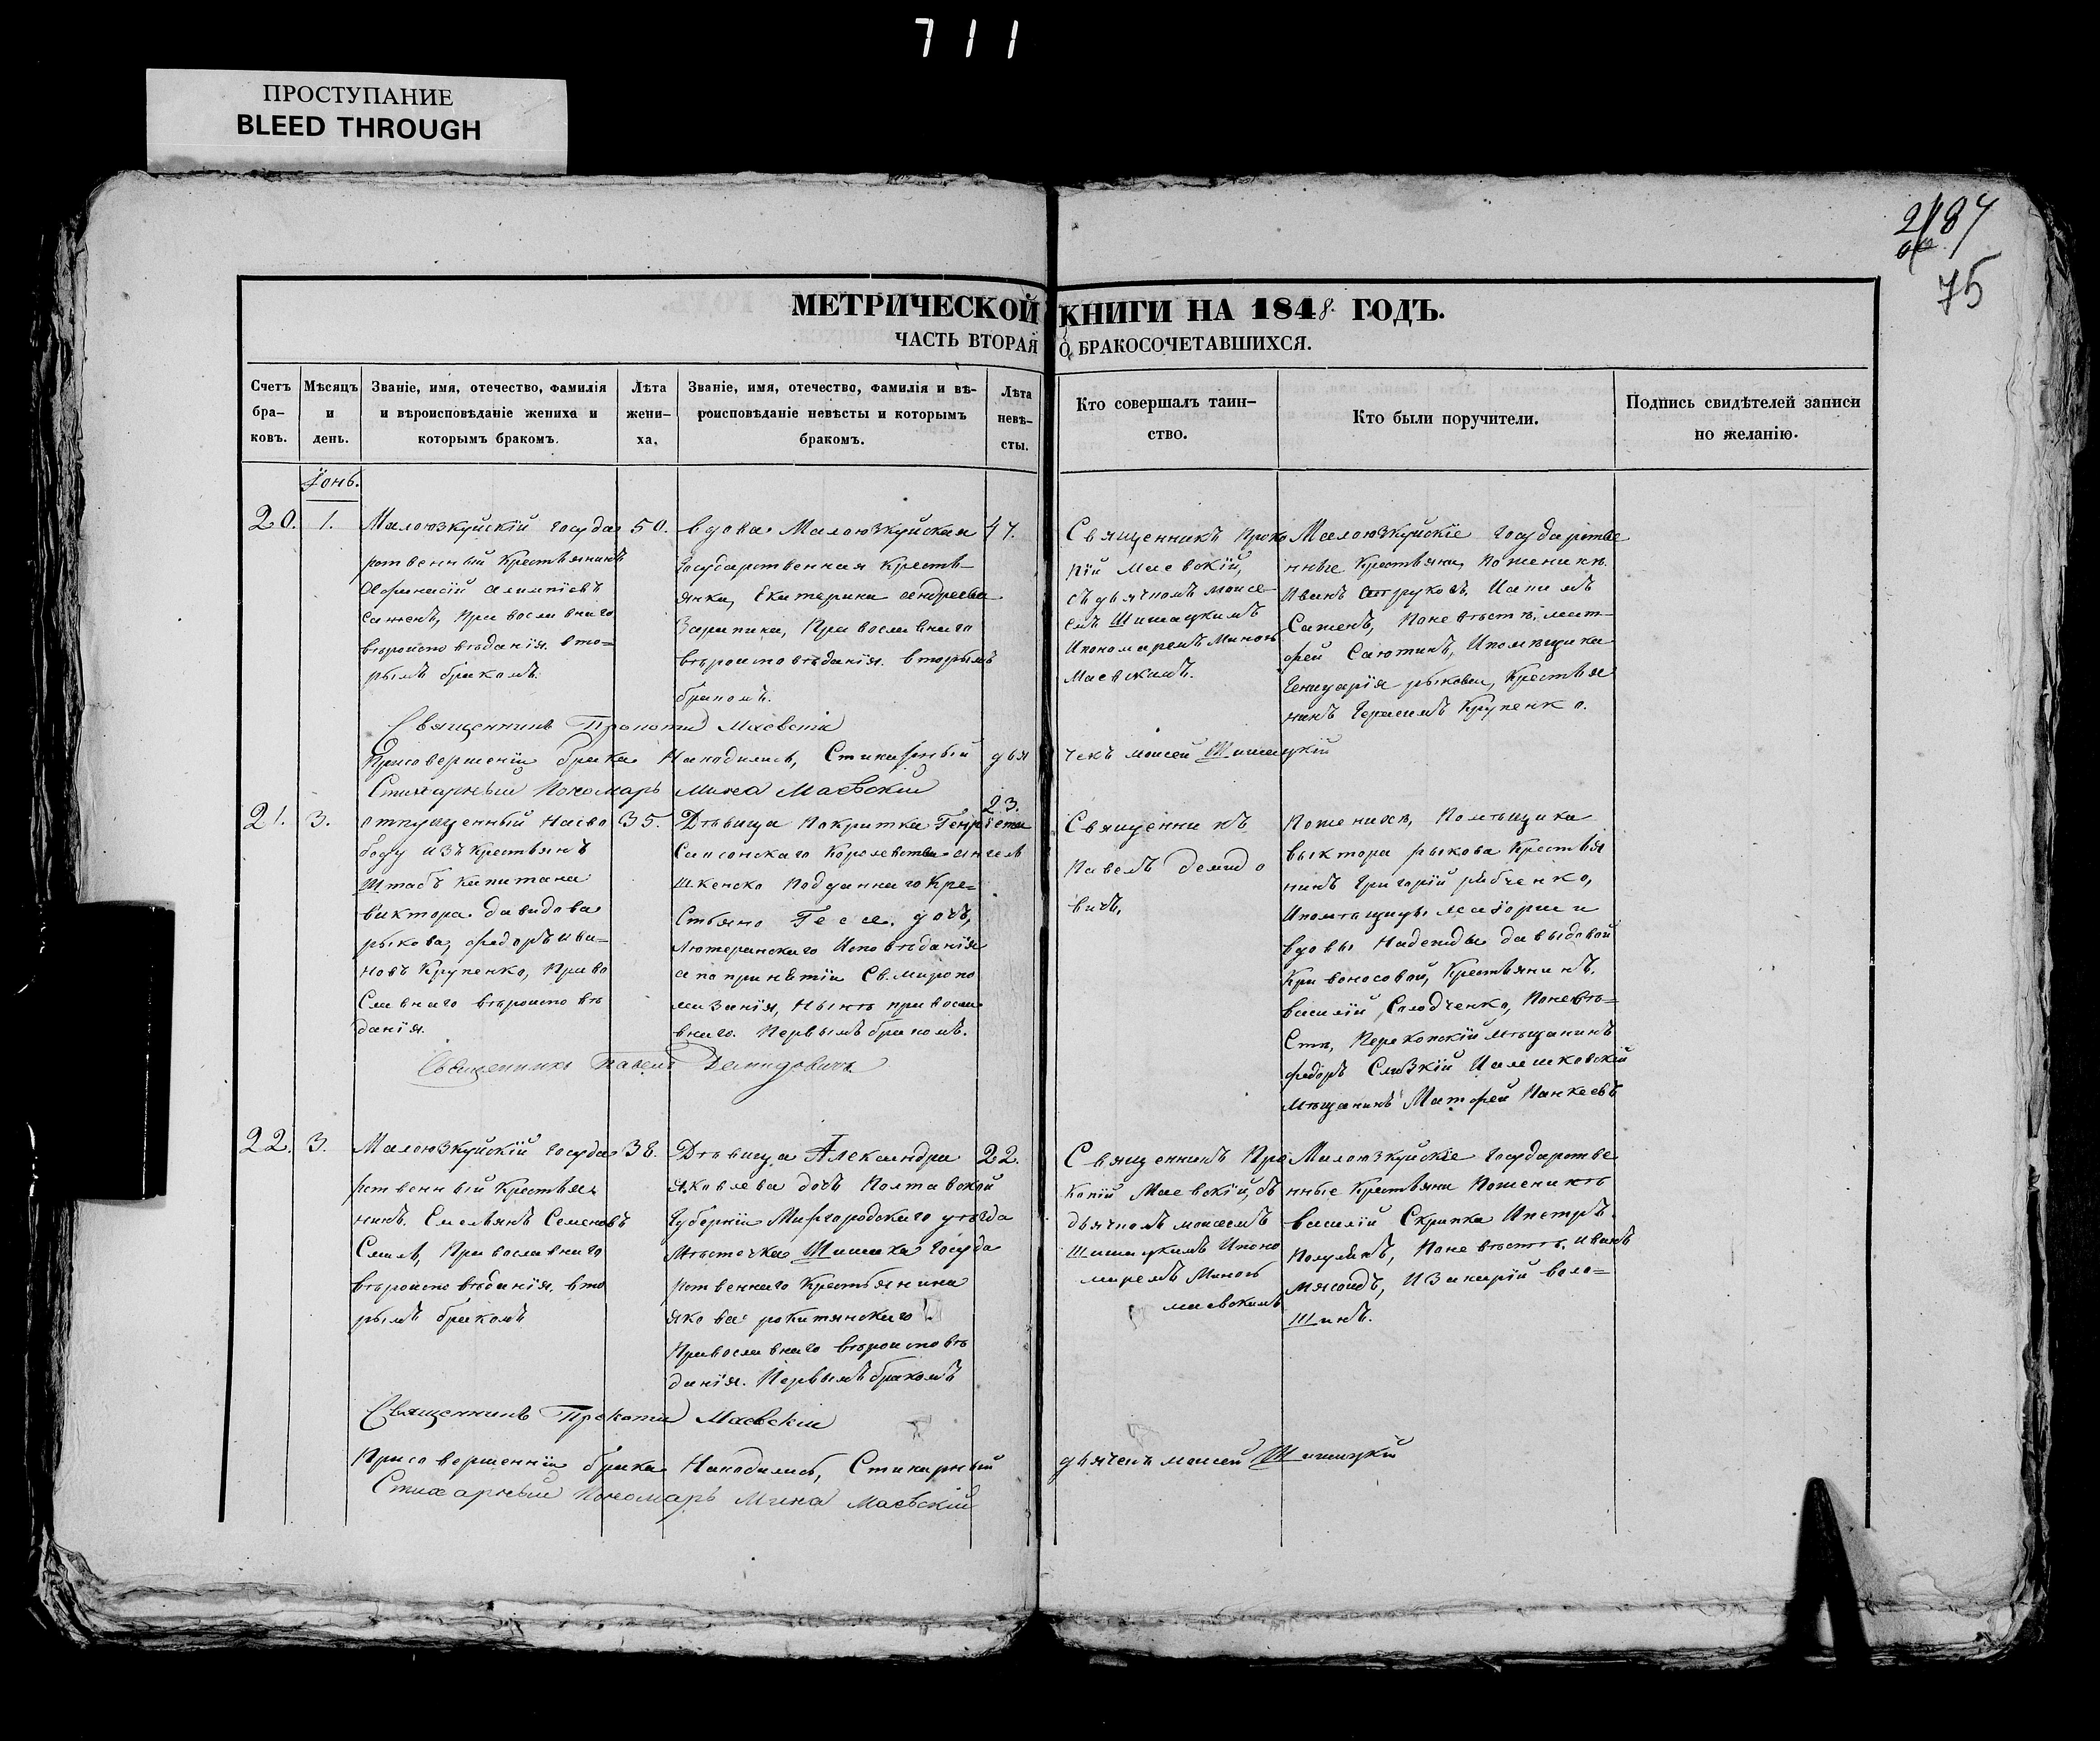 711
ПРОСТУПАНИЕ
BLEED THROUGH
75
МЕТРИЧЕСКОЙ КНИГИ НА 1848. ГОДЪ.
ЧАСТЬ ВТОРАЯ О БРАКОСОЧЕТАВШИХСЯ.
Счетъ бра-
ковъ.
Мѣсяцъ
и
день.
Званіе, имя, отечество, фамилія
и вѣроисповѣданіе жениха и
которымъ бракомъ.
Лѣта
жени-
ха.
Званіе, имя, отечество, фамилія и вѣ-
роисповѣданіе невѣсты и которымъ
бракомъ.
Лѣта
невѣ-
сты.
Кто совершалъ таин-
ство.
Кто были поручители.
Подпись свидѣтелей записи
по желанію.
20.
1.
Малоюзкуйскій госуда
рственный Крестьянинъ
Афанасій
Православнаго
вѣроисповѣданія. вто=
рымъ бракомъ.
50.
вдова Малоюзкуйская
Государственная Кресть-
янка, Екатерина Андреева
Православнаго
вѣроисповѣданія. вторымъ
бракомъ.
47.
Священникъ Проко
пій Маевскій,
съ дьячкомъ моисе
емъ Шишацкимъ
Ипономаремъ Миною
Маевскимъ.
Малоюзкуйскіе Государстве
нные Крестьяни, Поженихѣ
Иванъ
Поневѣстѣ, мат-
фей Саютинъ, Ипомѣщика
рыкова, Крестья
нинъ Герасимъ Крупенко.
Священникъ Прокопій Маевскій
Присовершеніи брака Находились, Стихарный дья
чекъ моисей Шишацкій
Стихарный Пономарь Мина Маевскій
21.
3.
отпущенный Насво
боду изъ Крестьянъ
Штабъ Капитана
Виктора Давидова
рыкова, федоръ ива=
новъ Крупенко, Право
Славнаго вѣроисповѣ
данія.
35.
Дѣвица Покритка Генріета
Саксонскаго Королевства
Подданнаго Кре=
дочь,
Лютеранскаго Исповѣданія
апопринятіи Св. миропо
мазанія, Нынѣ православ
внаго. Первымъ бракомъ.
23.
Священникъ
Павелъ демидо
вичъ,
Поженихѣ, Помѣщика
виктора рыкова Крестья
нинъ Григорій рябченко,
Ипомѣщицы маіорши
вдовы Надежды давыдовой
Кривоносовой, Крестьянинъ
василій Солодченко, Поневѣ=
стѣ, Перекопскій мѣщанинъ
федоръ Слизкій Иалешковскій
мѣщанинъ Матфей Панкеевъ
Священникъ Павелъ Демидовичъ
22.
3.
Малоюзкуйскій госуда
рственный Крестья
нинъ. Емельянъ Семеновъ
Православнаго
вѣроисповѣданія. вто
рымъ бракомъ
38.
Дѣвица Александра
Яковлева дочь Полтавской
Губерніи Миргородскаго уѣзда
Мѣстечка Шишака Госуда
рственнаго Крестьянина
якова рокитянскаго
Православнаго вѣроисповѣ
данія. Первымъ бракомъ
22.
Священникъ Про
копій Маевскій, съ
дьячкомъ моисеемъ
Шишацкимъ Ипоно
маремъ Миною
маевскимъ
Малоюзкуйскіе Государстве
нные Крестьяни Поженихѣ
василій Скрипка Ипетръ
Поневѣстѣ. иванъ
мясоидъ, Изахарій воло=
шинъ.
Священникъ Прокопій Маевскій
Присовершеніи брака Находились, Стихарный
дьячекъ моисей Шишацкій
Стихарный Пономарь Мина Маевскій